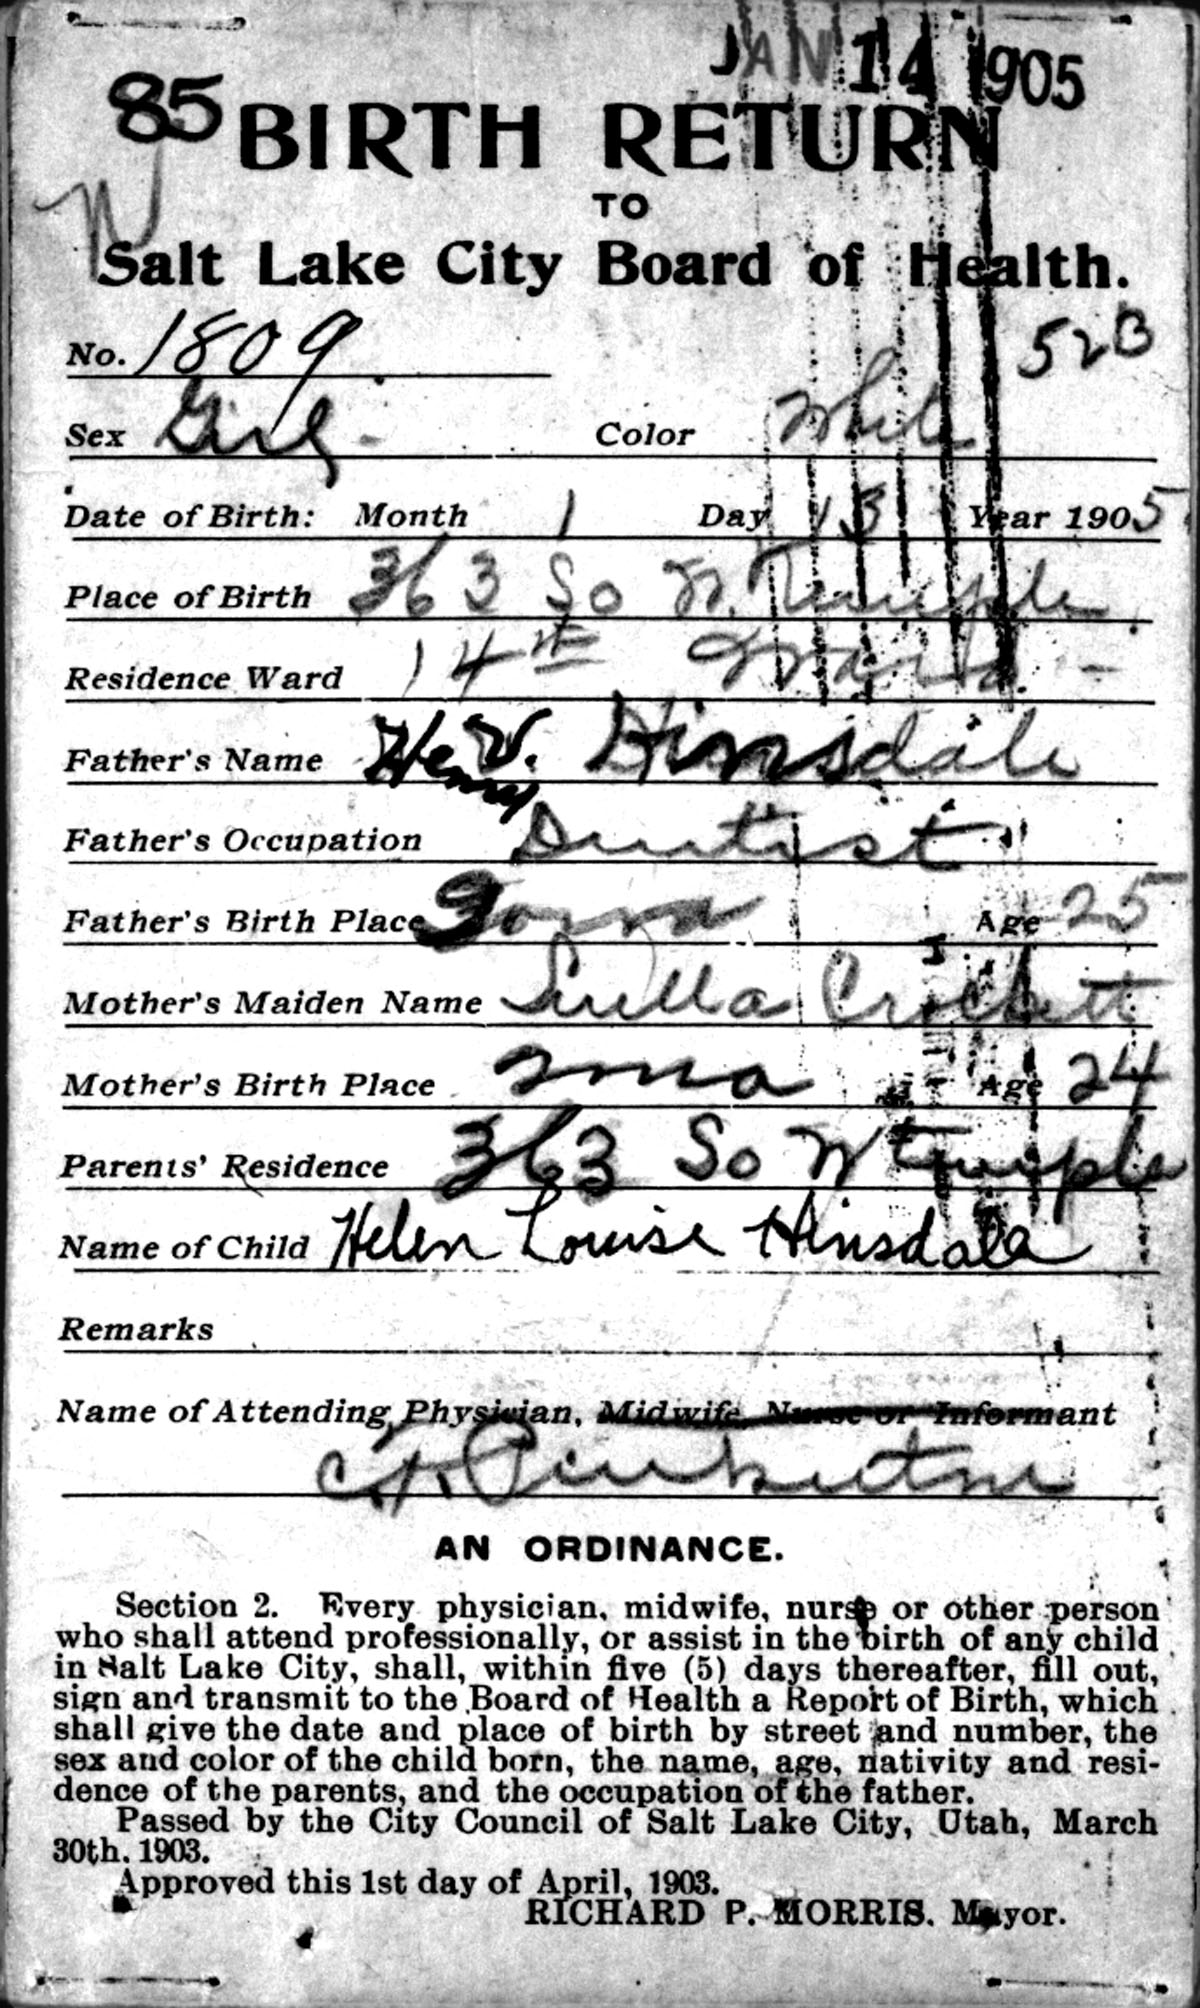 JAN 14 1905
85 BIRTH RETURN
TO
Salt Lake City Board of Health.
No. 1809 52B
Sex Girl Color White
Date of Birth: Month 1 Day 13 Year 1905
Place of Birth 363 So W. Temple
Residence Ward 14th Ward
Father's Name Henry W. Hinsdale
Father's Occupation Dentist
Father's Birth Place Iowa Age 25
Mother's Maiden Name Luella Crockett
Mother's Birth Place Age 24
Parents' Residence 363 So W Temple
Name of Child Helen Louise Hinsdale
Remarks
Name of Attending Physician, Midwife, Nurse or Informant
AN ORDINANCE.
Section 2. Every physician, midwife, nurse or other person
who shall attend professionally, or assist in the birth of any child
in Salt Lake City, shall, within five (5) days thereafter, fill out,
sign and transmit to the Board of Health a Report of Birth, which
shall give the date and place of birth by street and number, the
sex and color of the child born, the name, age, nativity and resi-
dence of the parents, and the occupation of the father.
Passed by the City Council of Salt Lake City, Utah, March
30th. 1903.
Approved this 1st day of April, 1903.
RICHARD P. MORRIS. Mayor.